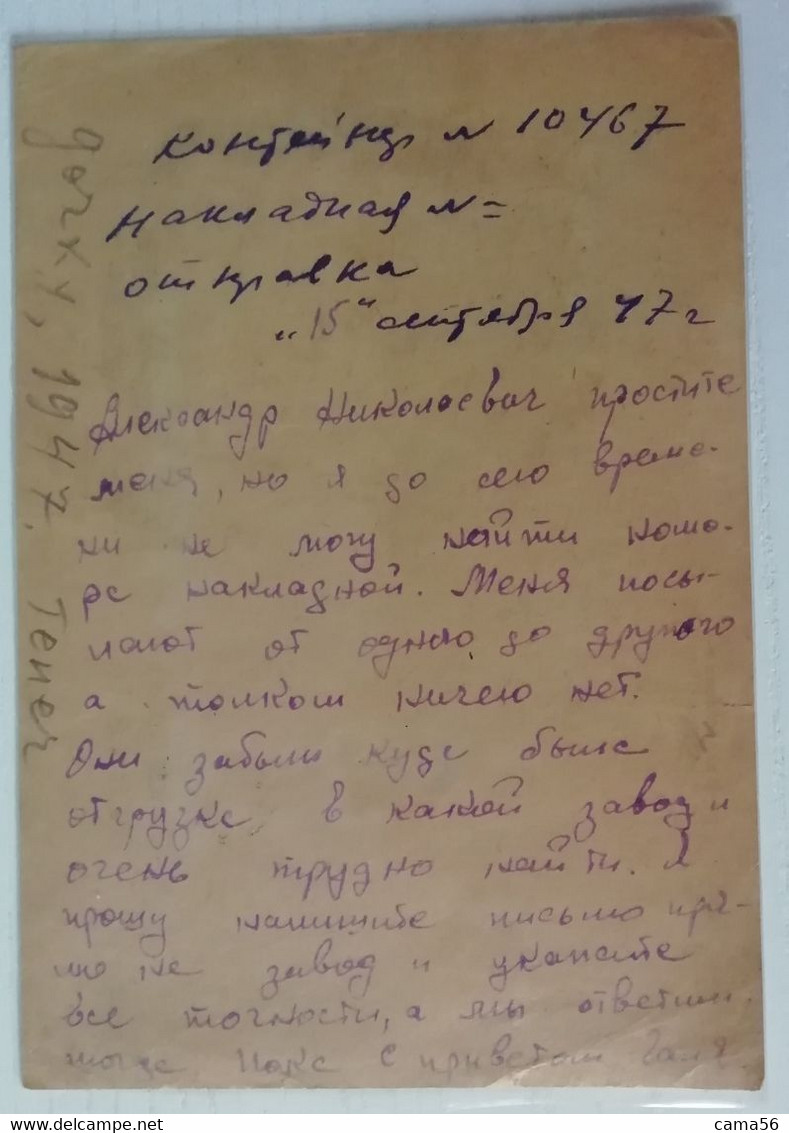 контейнер № 10467
накладная №=
отправка
"15" сентября 47 г
Александр Николаевич простите
меня, но я до сего време-
ни не могу найти номе-
ра накладной. Меня посы-
лают от одного до другого
а толком ничего нет.
Они забыли куда была
отгрузка, в какой завод и
очень трудно найти. Я
прошу напишите письмо пря-
мо на завод и укажите
все точности, а мы ответим
тогда Пока с приветом Галя
дочку, 1947,
cama56